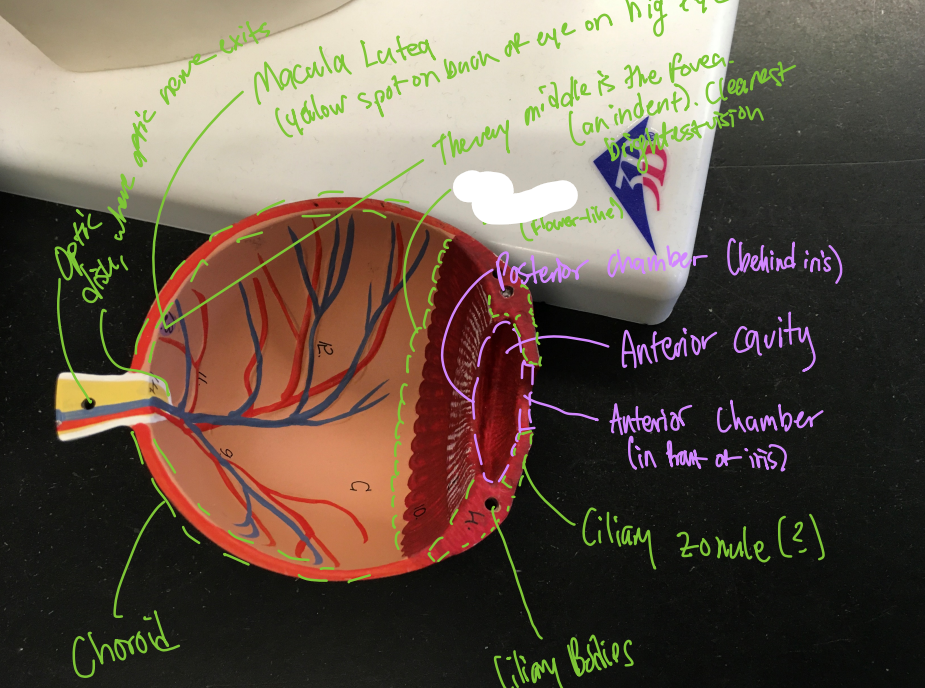 Optic nerve exits
Macula Lutea
(yellow spot on back of eye on big eye
The very middle is the fovea.
(an indent). Clearest
brightest vision
3B
(flower-like)
Optic
disk, where
Posterior chamber (behind iris)
Anterior cavity
Anterior chamber
(in front of iris)
Ciliary zonule (?)
Choroid
Ciliary Bodies
12.
11
9
G
10
H